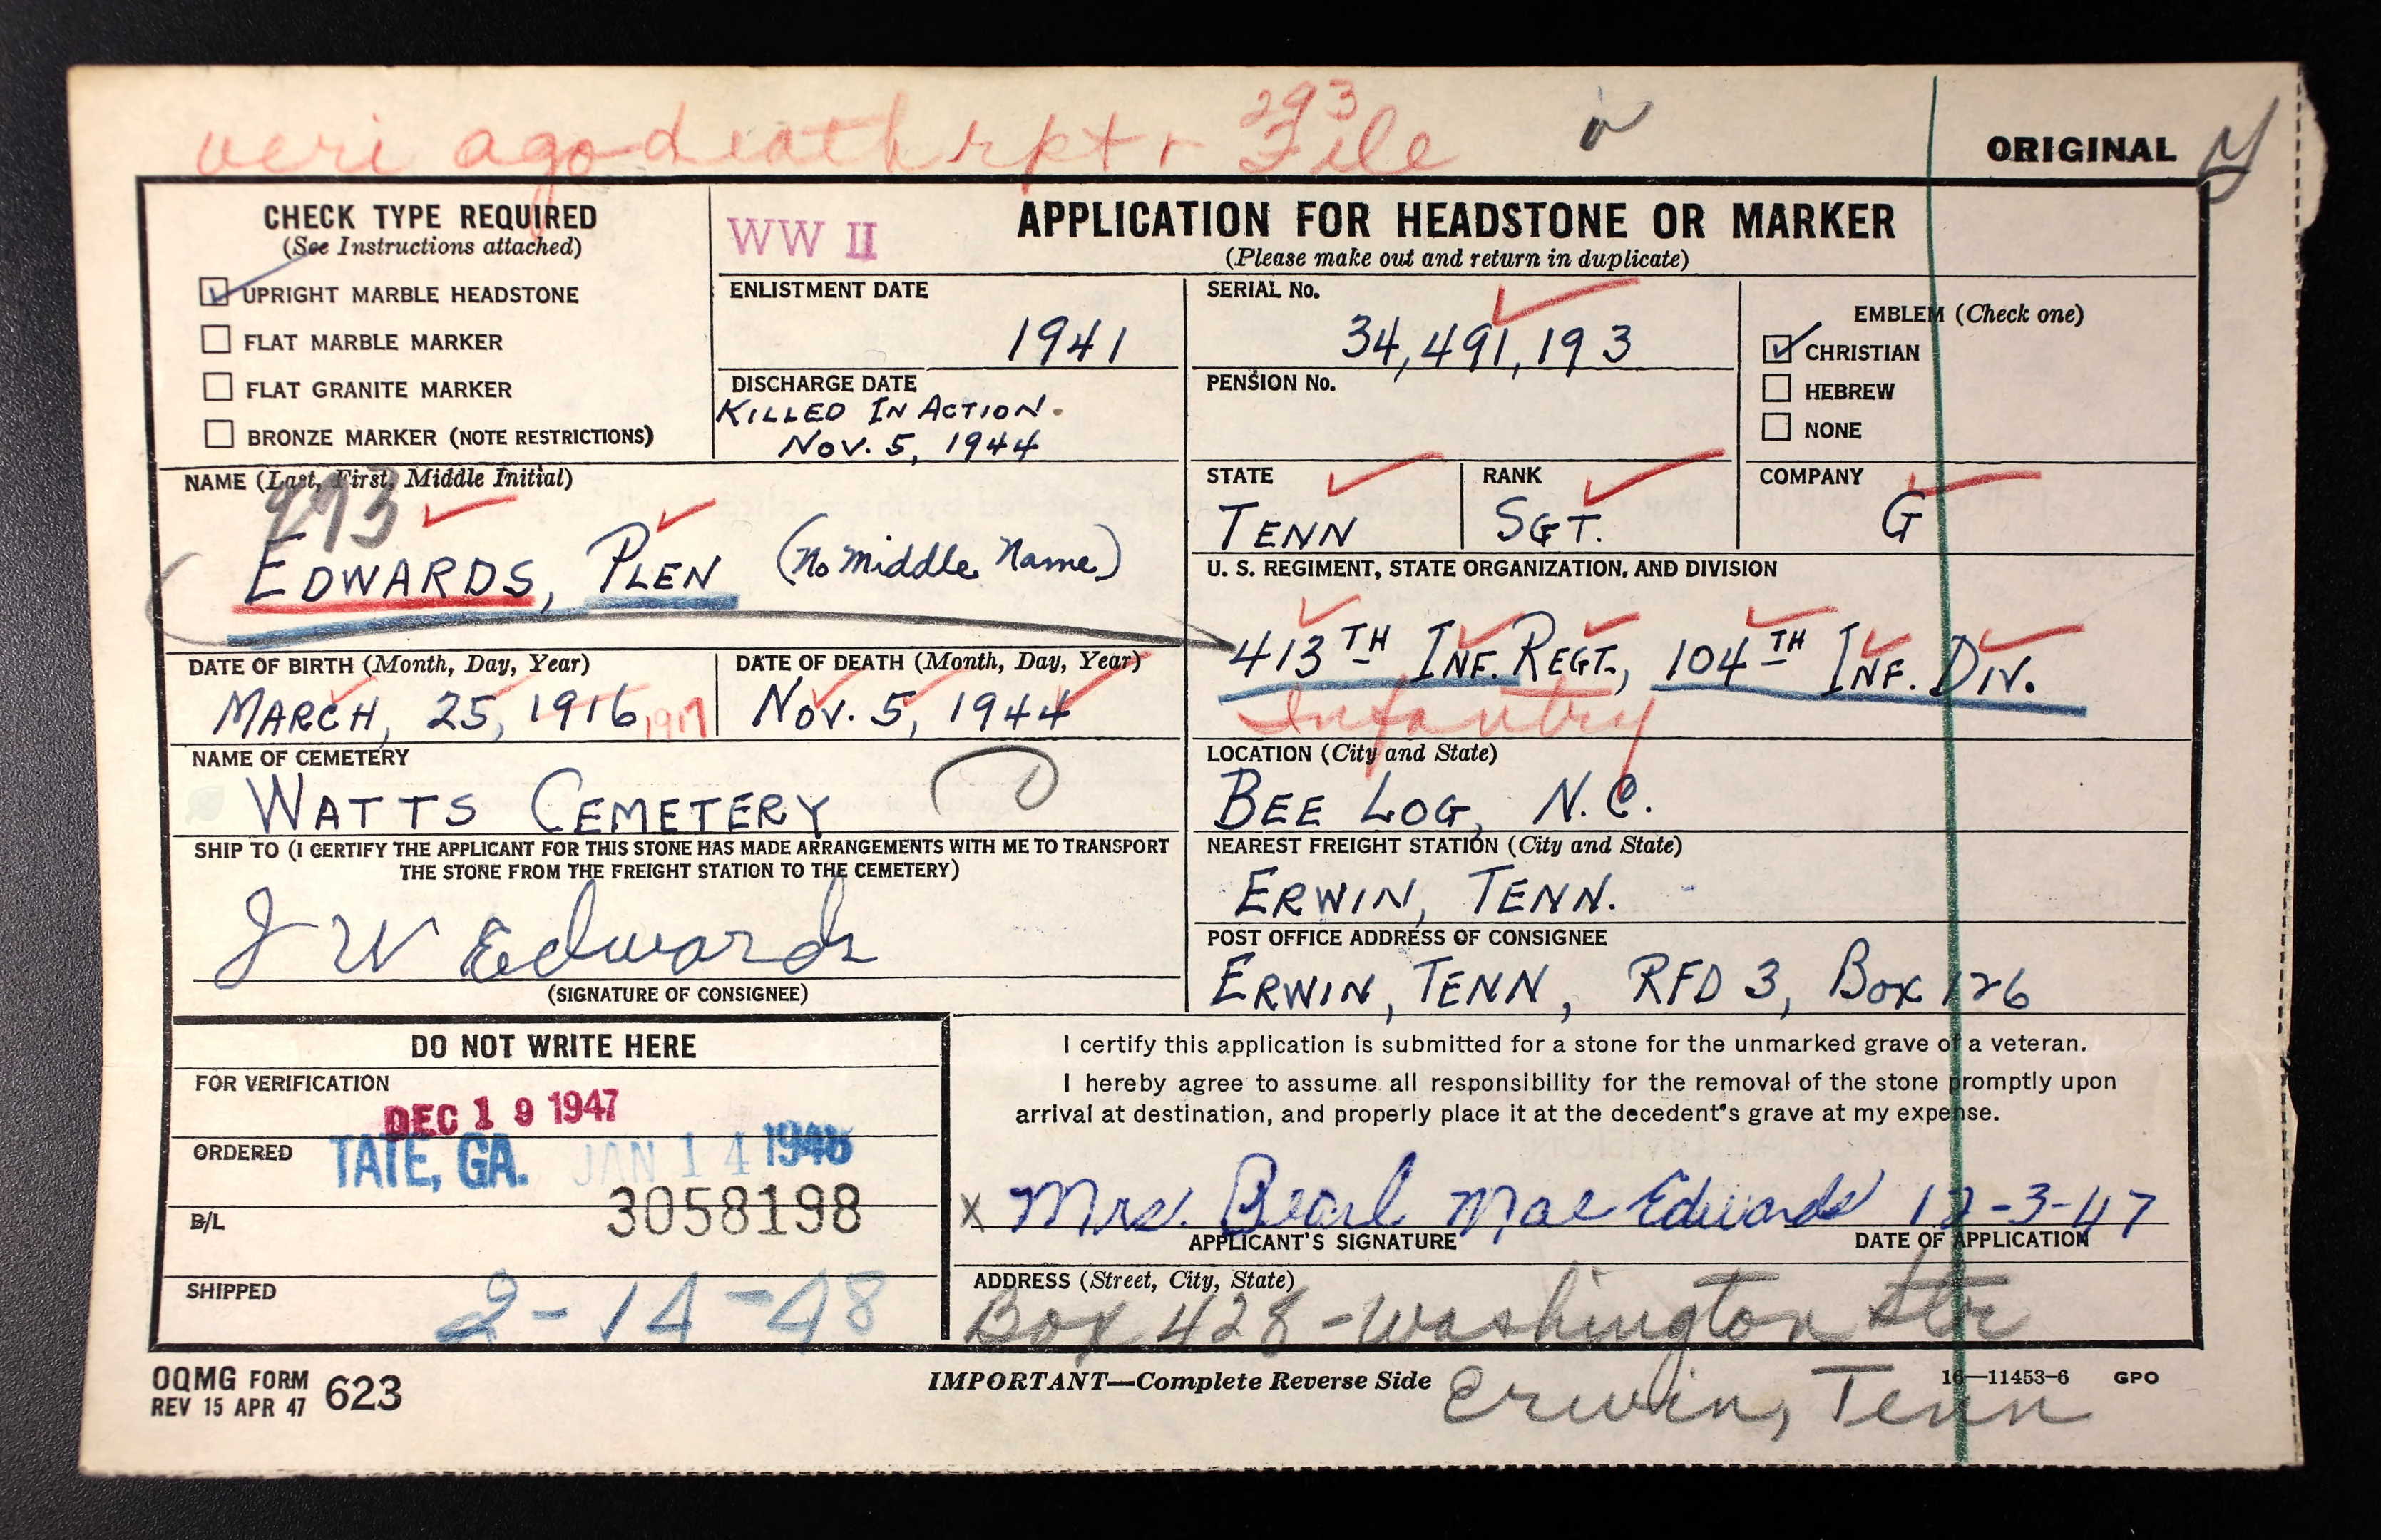 veri ago death rpt r 293 File
ORIGINAL
CHECK TYPE REQUIRED
(See Instructions attached)
UPRIGHT MARBLE HEADSTONE
FLAT MARBLE MARKER
FLAT GRANITE MARKER
BRONZE MARKER (NOTE RESTRICTIONS)
WW II
APPLICATION FOR HEADSTONE OR MARKER
(Please make out and return in duplicate)
ENLISTMENT DATE
1941
DISCHARGE DATE
KILLED IN ACTION.
NOV. 5, 1944
SERIAL No.
34,491,193
PENSION No.
EMBLEM (Check one)
CHRISTIAN
HEBREW
NONE
NAME (Last, First, Middle Initial)
293
EDWARDS, PLEN (No Middle Name)
STATE
TENN
RANK
SGT.
COMPANY
G
U. S. REGIMENT, STATE ORGANIZATION, AND DIVISION
413TH INF. REGT., 104TH INF. DIV.
Infantry
DATE OF BIRTH (Month, Day, Year)
MARCH, 25, 1916, 1917
DATE OF DEATH (Month, Day, Year)
NOV. 5, 1944
NAME OF CEMETERY
WATTS CEMETERY
LOCATION (City and State)
BEE LOG, N.C.
SHIP TO (I CERTIFY THE APPLICANT FOR THIS STONE HAS MADE ARRANGEMENTS WITH ME TO TRANSPORT
THE STONE FROM THE FREIGHT STATION TO THE CEMETERY)
J W Edwards
(SIGNATURE OF CONSIGNEE)
NEAREST FREIGHT STATION (City and State)
ERWIN, TENN.
POST OFFICE ADDRESS OF CONSIGNEE
ERWIN, TENN, RFD 3, Box 126
DO NOT WRITE HERE
FOR VERIFICATION
DEC 19 1947
ORDERED
TATE, GA. JAN 14 1948
B/L
3058198
SHIPPED
2-14-48
I certify this application is submitted for a stone for the unmarked grave of a veteran.
I hereby agree to assume all responsibility for the removal of the stone promptly upon
arrival at destination, and properly place it at the decedent's grave at my expense.
X Mrs. Bearl Mae Edwards 12-3-47
APPLICANT'S SIGNATURE
DATE OF APPLICATION
ADDRESS (Street, City, State)
Box 428 - Washington Str
Erwin, Tenn
OQMG FORM 623
REV 15 APR 47
IMPORTANT—Complete Reverse Side
16—11453-6 GPO